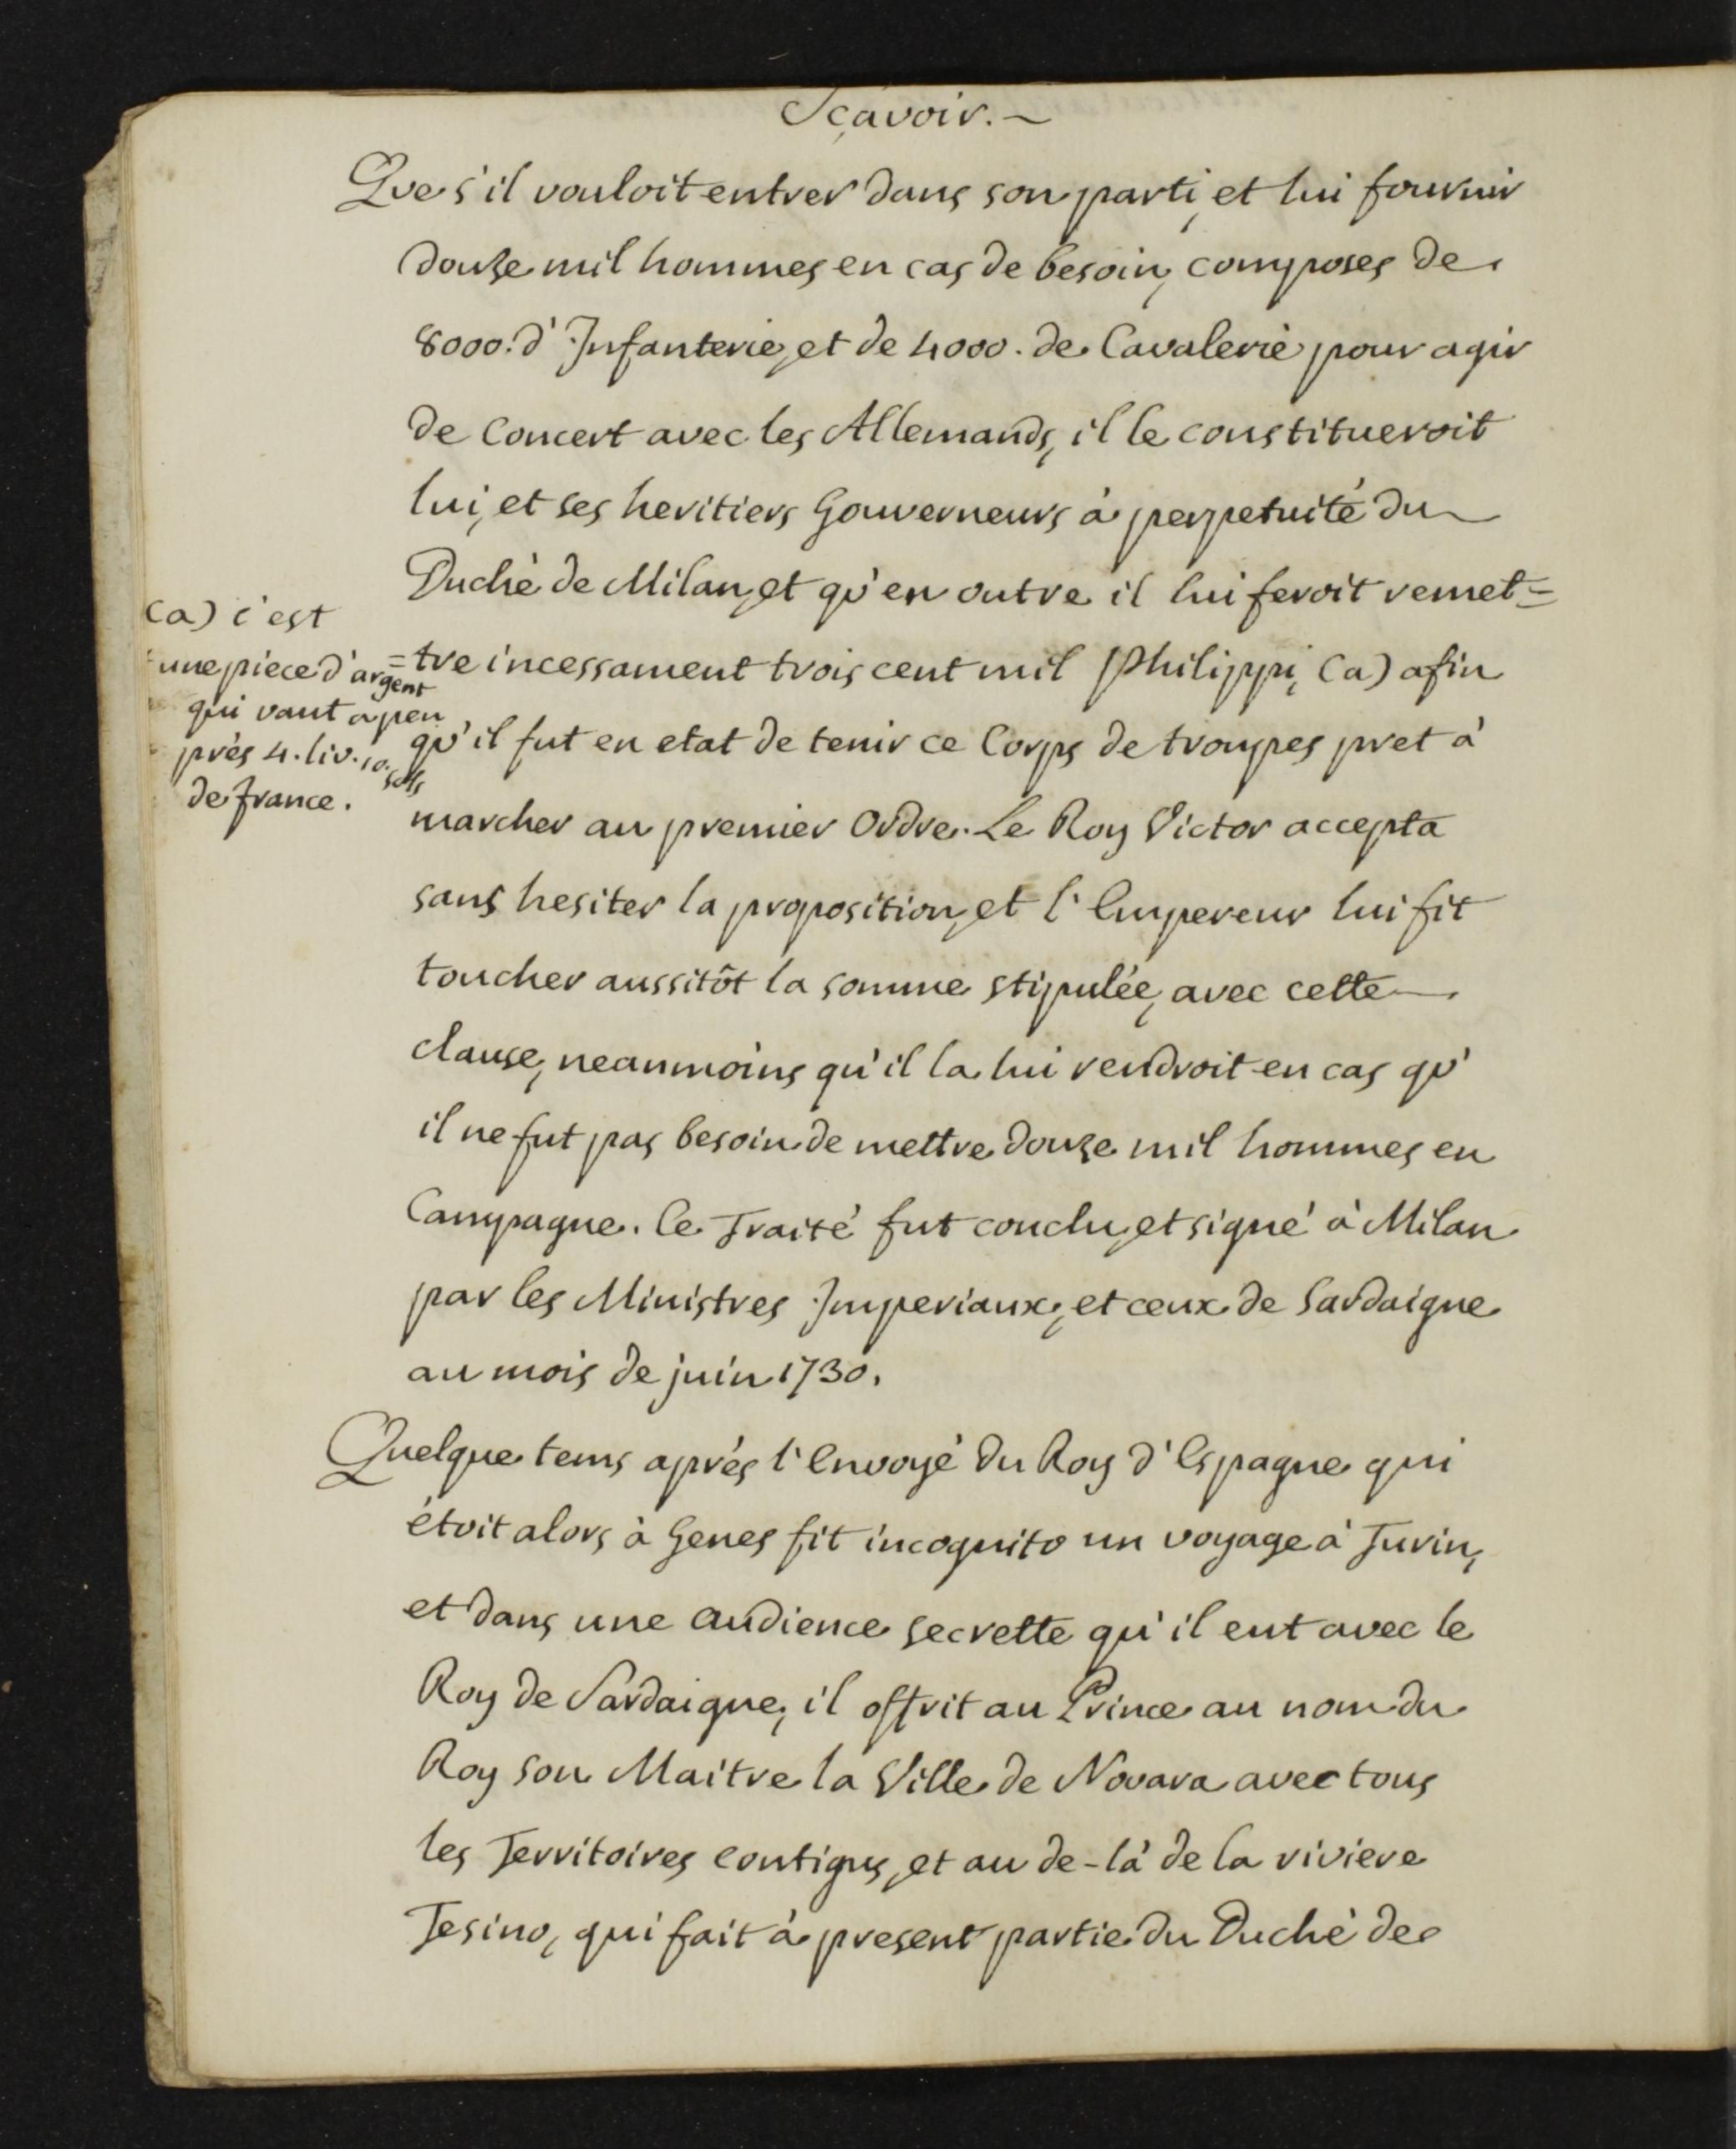 Sçavoir.~
Que s'il vouloit entrer dans son parti, et lui fournir
douze mil hommes en cas de besoin, composes de
8000. d'Infanterie, et de 4000. de Cavalerie pour agir
de Concert avec les Allemands, il le constitueroit
lui, et ses heritiers Gouverneurs à perpetuité du
Duché de Milan, et qu'en outre il lui feroit remet=
=tre incessament trois cent mil Philippi, (a) afin
qu'il fut en etat de tenir ce Corps de troupes pret à
marcher au premier Ordre. Le Roy Victor accepta
sans hesiter la proposition, et l'Empereur lui fit
toucher aussitôt la somme stipulée, avec cette
clause, neanmoins qu'il la lui rendroit en cas qu'
il ne fut pas besoin de mettre douze mil hommes en
Campagne. Ce Traité fut conclu, et signé à Milan
par les Ministres Imperiaux, et ceux de Sardaigne
au mois de juin 1730.
Quelque tems aprés l'Envoyé du Roy d'Espagne qui
étoit alors à Genes fit incognito un voyage à Turin,
et dans une audience secrette qu'il eut avec le
Roy de Sardaigne, il offrit au Prince au nom du
Roy son Maitre la Ville de Novara avec tous
les Territoires contigus, et au de-là de la riviere
Tesino, qui fait à present partie du Duché de
(a) c'est
une piece d'argent
qui vaut a peu
près 4. liv. 10. sols
de france.